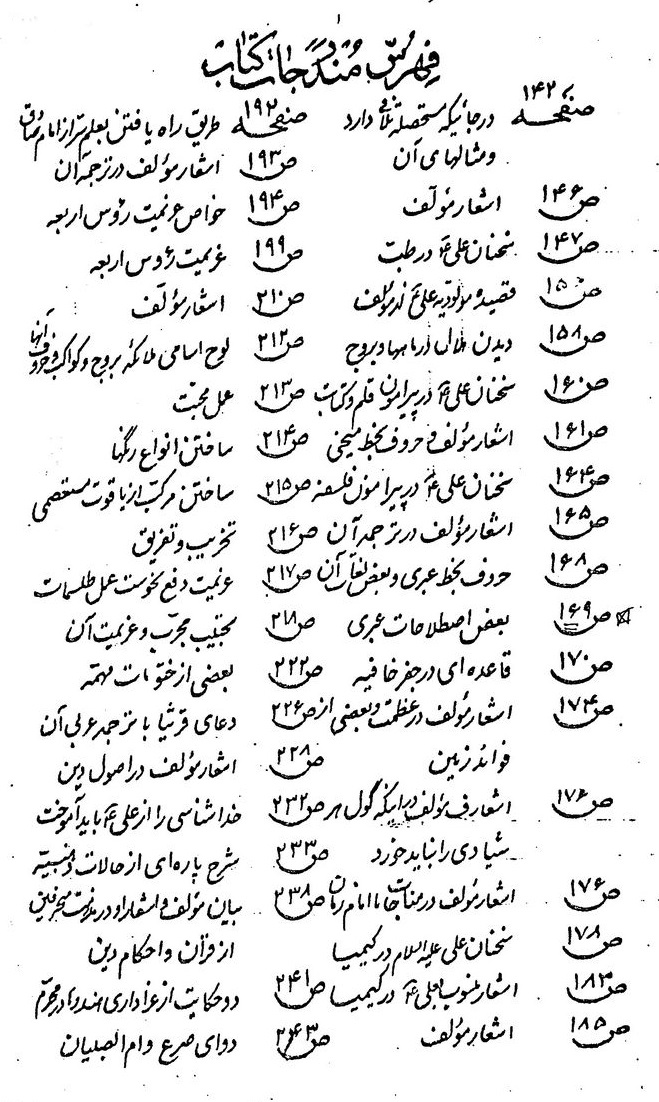 فهرس مندرجات کتاب
صفحه ۱۴۲ در جائیکه مستحصله دارد
ومثالهای آن
ص ۱۴۶ اشعار مؤلف
ص ۱۴۷ سخنان علی ع در طب
ص ۱۵۰ قصیده مولودیه علی ع از مؤلف
ص ۱۵۸ دیدن هلال در ماهها و بروج
ص ۱۶۰ سخنان علی ع در پیرامون قلم و کتاب
ص ۱۶۱ اشعار مؤلف و حروف بخط میخی
ص ۱۶۴ سخنان علی ع در پیرامون فلسفه
ص ۱۶۵ اشعار مؤلف در ترجمه آن
ص ۱۶۸ حروف بخط عبری و بعض لغات آن
ص ۱۶۹ بعض اصطلاحات عبری
ص ۱۷۰ قاعده ای در جفر خافیه
ص ۱۷۴ اشعار مؤلف در عظمت و بعضی از
فوائد زمین
ص ۱۷۶ اشعار مؤلف در اینکه گول هر
شیادی را نباید خورد
ص ۱۷۶ اشعار مؤلف در مناجات با امام زمان
ص ۱۷۸ سخنان علی علیه السلام در کیمیا
ص ۱۸۳ اشعار منسوب بعلی ع در کیمیا
ص ۱۸۵ اشعار مؤلف
صفحه ۱۹۲ طریق راه یافتن بعلم از امام صادق
ص ۱۹۳ اشعار مؤلف در ترجمه آن
ص ۱۹۴ خواص عزیمت رؤس اربعه
ص ۱۹۹ عزیمت رؤس اربعه
ص ۲۱۰ اشعار مؤلف
ص ۲۱۲ لوح اسامی ملائکه بروج و کواکب و حروف آنها
ص ۲۱۳ عمل محبت
ص ۲۱۴ ساختن انواع رنگها
ص ۲۱۵ ساختن مرکب از یاقوت مستعصمی
ص ۲۱۶ تخریب و تفریق
ص ۲۱۷ عزیمت دفع نحوست عمل طلسمات
ص ۲۱۸ مجرب و عزیمت آن
ص ۲۲۲ بعضی از ختومات مهمه
ص ۲۲۶ دعای قرشیا با ترجمه عربی آن
ص ۲۲۸ اشعار مؤلف در اصول دین
ص ۲۳۲ خداشناسی را از علی ع باید آموخت
ص ۲۳۳ شرح پاره ای از حالات
ص ۲۳۸ بیان مؤلف و اشعار او در مذمت منحرفین
از قرآن و احکام دین
ص ۲۴۱ دو حکایت از عزاداری هندو در محرم
ص ۲۴۳ دوای صرع و ام الصبیان